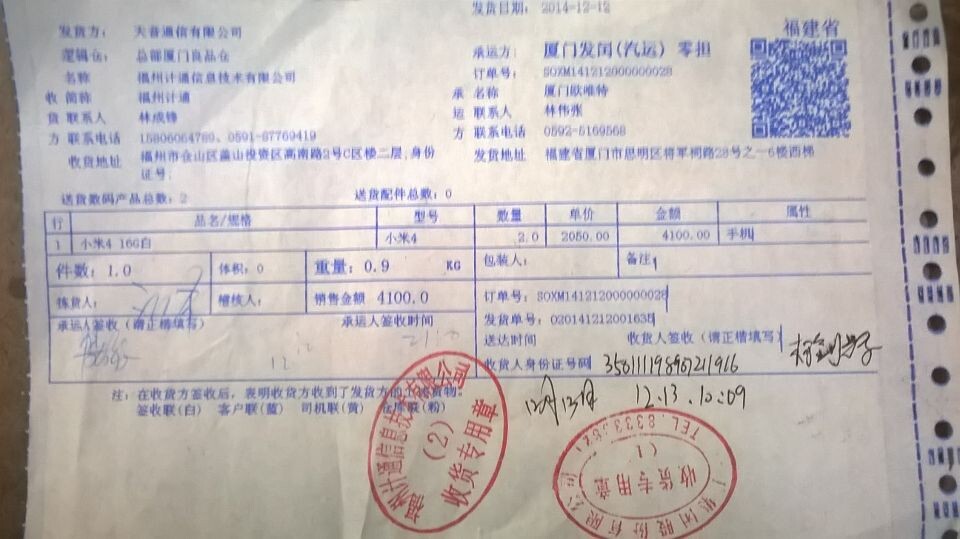 发货日期: 2014-12-12
福建省
发货方: 天音通信有限公司
逻辑仓: 总部厦门良品仓
承运方: 厦门发闵(汽运) 零担
名称 福州计通信息技术有限公司
订单号: SOXM141212000000028
收 简称 福州计通
承 名称 厦门欧唯特
货 联系人 林成锋
运 联系人 林伟张
方 联系电话 15806054789、0591-87769419
方 联系电话 0592-5169568
收货地址 福州市仓山区盖山投资区高南路2号C区楼二层,身份证号:
发货地址 福建省厦门市思明区将军祠路28号之一6楼西梯
送货数码产品总数: 2 送货配件总数: 0
行 品名/规格 型号 数量 单价 金额 属性
1 小米4 16G白 小米4 2.0 2050.00 4100.00 手机
件数: 1.0 体积: 0 重量: 0.9 KG 包装人: 备注
拣货人: 稽核人: 销售金额 4100.0
订单号: SOXM141212000000028
承运人签收(请正楷填写) 承运人签收时间
发货单号: 0201412120016
送达时间 收货人签收(请正楷填写)
收货人身份证号码
12月13日 12.13.10:09
注: 在收货方签收后, 表明收货方收到了发货方的 货物。
签收联(白) 客户联(蓝) 司机联(黄) 仓库联(粉)
福州计通信息技术有限公司
(2)
收货专用章
TEL:8333
(1)
收货专用章
集团股份有限公司